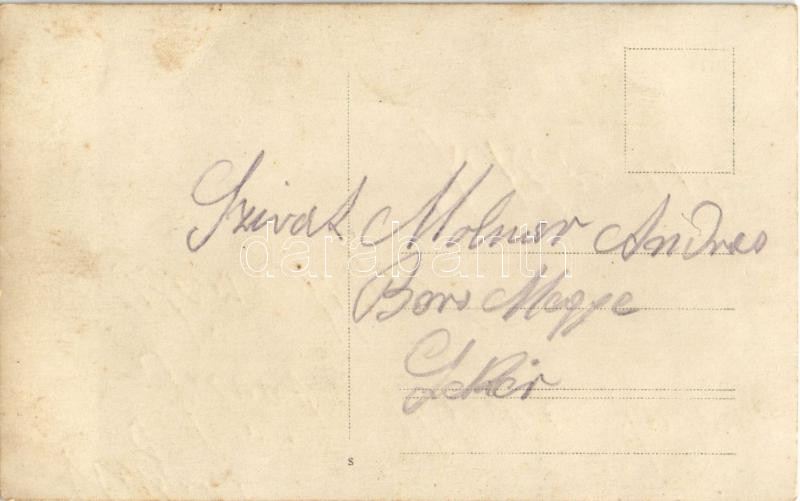 Szivat Molner Andras
Bars Megye
Lekér
darabanth
S